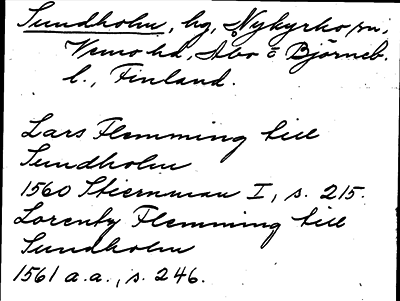 Sundholm, hg, Nykyrko sn,
Vemo hd, Åbo o Björneb.
l., Finland.
Lars Flemming till
Sundholm
1560 Stiernman I, s. 215.
Lorentz Flemming till
Sundholm
1561 a.a., s. 246.